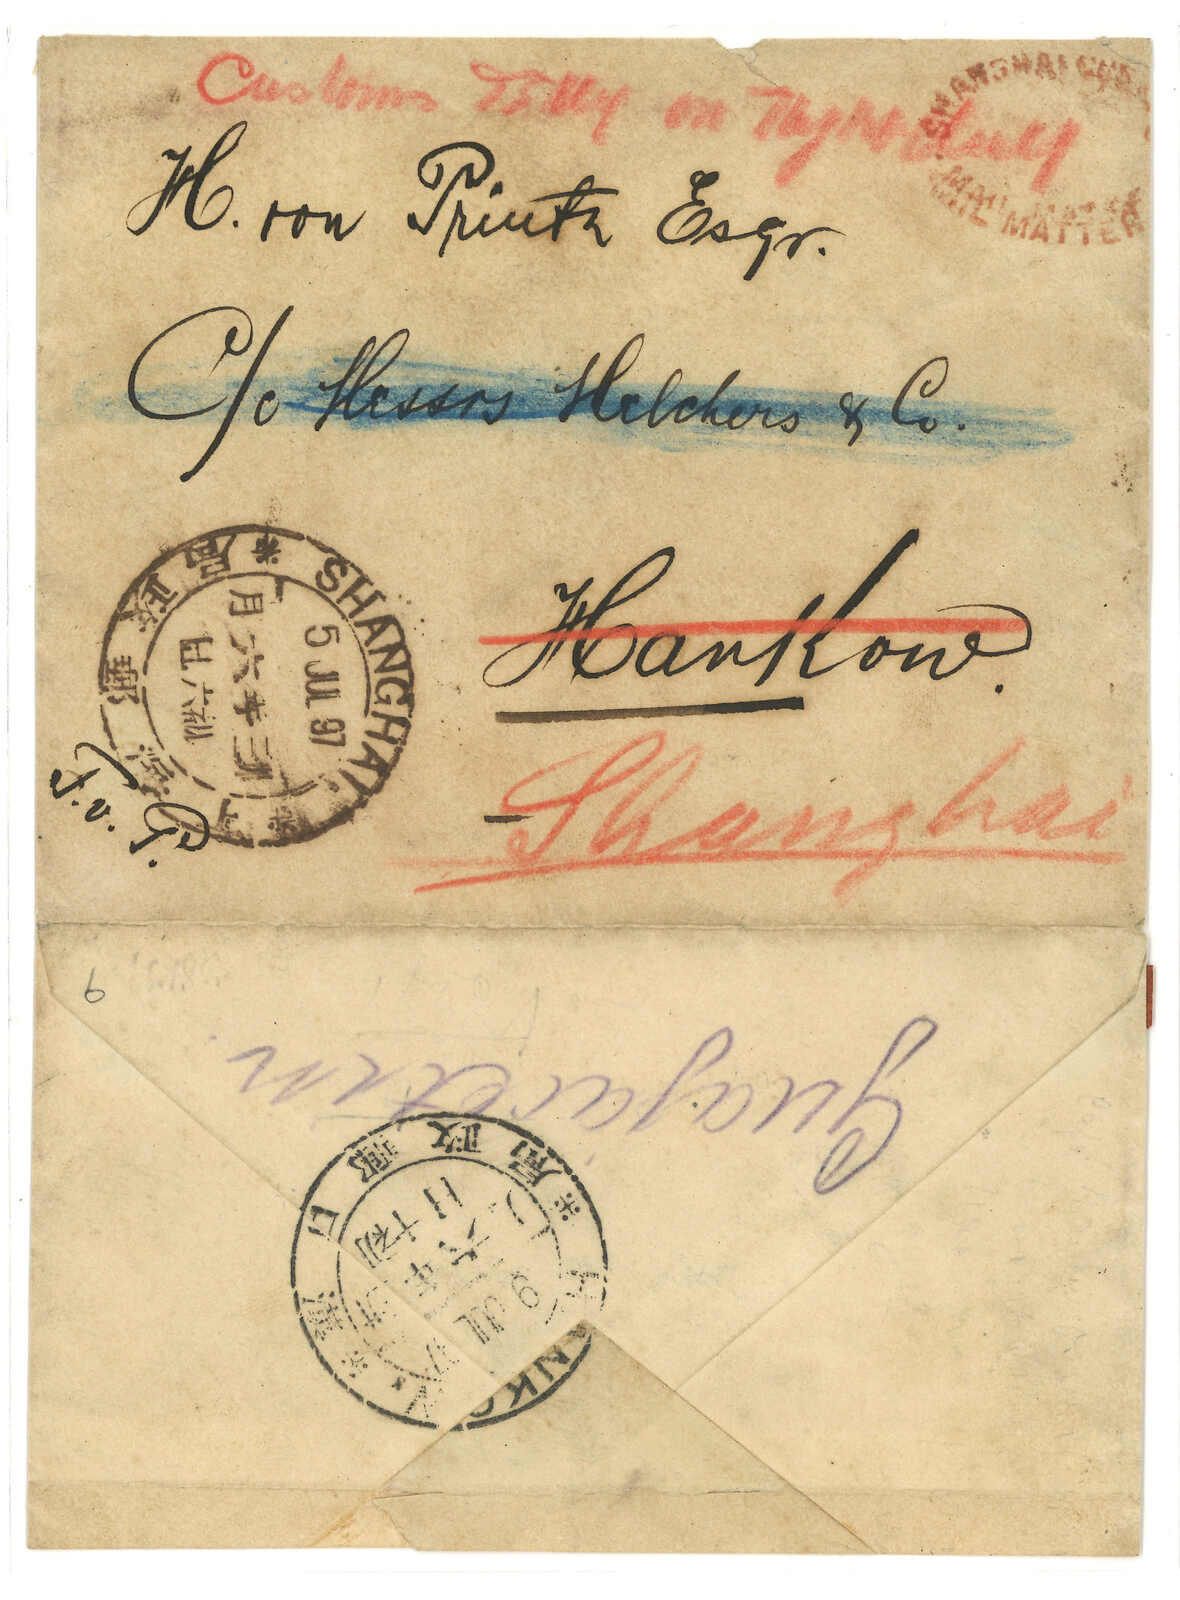 Customs Tilly on Night duty
SHANGHAI CUSTOMS
MAIL MATTER
H. von Printz Esqr.
C/o Messrs Melchers & Co.
Hankow.
Shanghai
SHANGHAI
5 JUL 97
郵政局
年六月
初六日
P. v. T.
9
漢口郵政局
HANKOW
9 JUL 97
年六
初十日